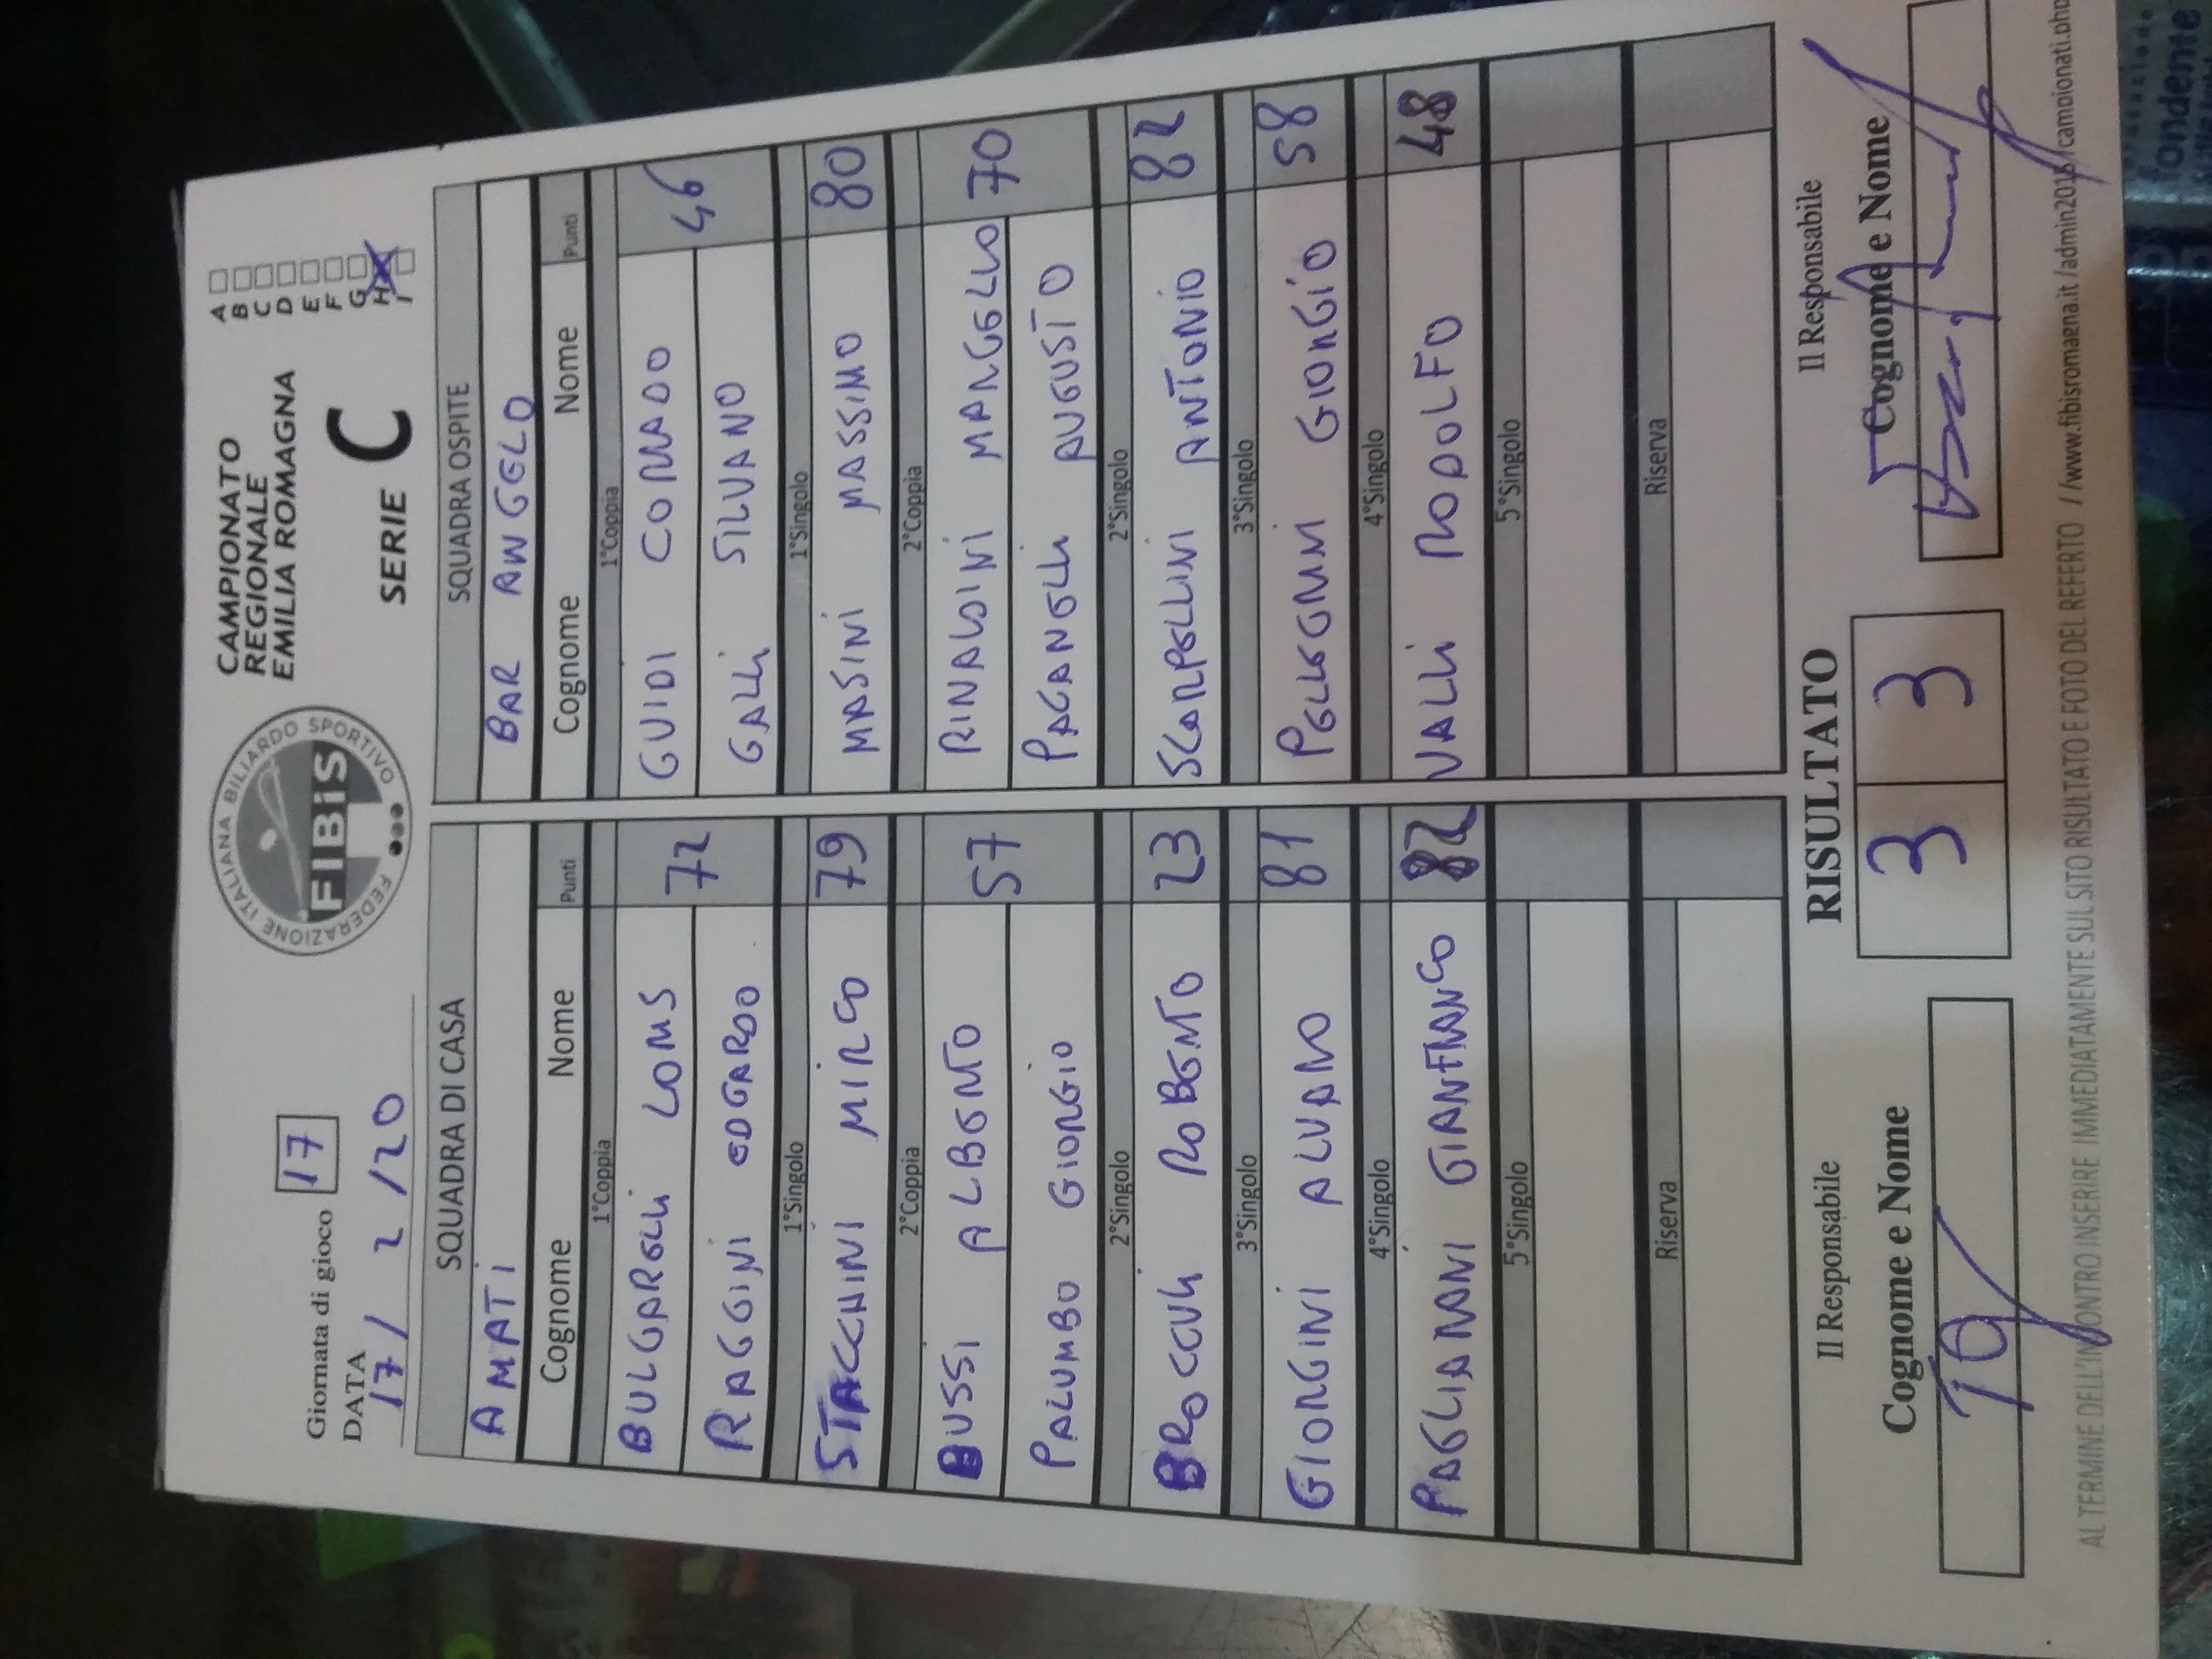 Giornata di gioco 17
DATA
17/ 2 /20
FEDERAZIONE ITALIANA BILIARDO SPORTIVO
FIBiS
CAMPIONATO
REGIONALE
EMILIA ROMAGNA
SERIE C
A
B
C
D
E
F
G
H X
I
SQUADRA DI CASA
AMATI
Cognome Nome Punti
1°Coppia
BULGARELLI LORIS 72
RAGGINI EDGARDO
1°Singolo
STACCHINI MIRCO 79
2°Coppia
BUSSI ALBERTO 57
PALUMBO GIORGIO
2°Singolo
BROCCULI ROBERTO 23
3°Singolo
GIORGINI ALVARO 81
4°Singolo
PAGLIARANI GIANFRANCO 82
5°Singolo
Riserva
SQUADRA OSPITE
BAR ANGELO
Cognome Nome Punti
1°Coppia
GUIDI CORRADO 46
GALLI SILVANO
1°Singolo
MASINI MASSIMO 80
2°Coppia
RINALDINI MARCELLO 70
PAGANELLI AUGUSTO
2°Singolo
SCARPELLINI ANTONIO 82
3°Singolo
PELLEGRINI GIORGIO 58
4°Singolo
VALLI RODOLFO 48
5°Singolo
Riserva
Il Responsabile
Cognome e Nome
RISULTATO
3 3
Il Responsabile
Cognome e Nome
AL TERMINE DELL'INCONTRO INSERIRE IMMEDIATAMENTE SUL SITO RISULTATO E FOTO DEL REFERTO //www.fibisromagna.it /admin2016/campionati.php
fondente